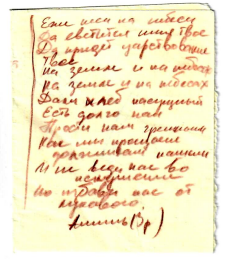 Еже еси на небеси
да светится имя твое
Да приидет царствование
твое
на земле и на небесах
на земле и на небесах
Дали хлеб насущный
Есть долго нам
Прости нам
Как мы прощаем
должникам нашим
И не веди нас во
искушение
Но избави нас от
лукавого
Аминь (3р)